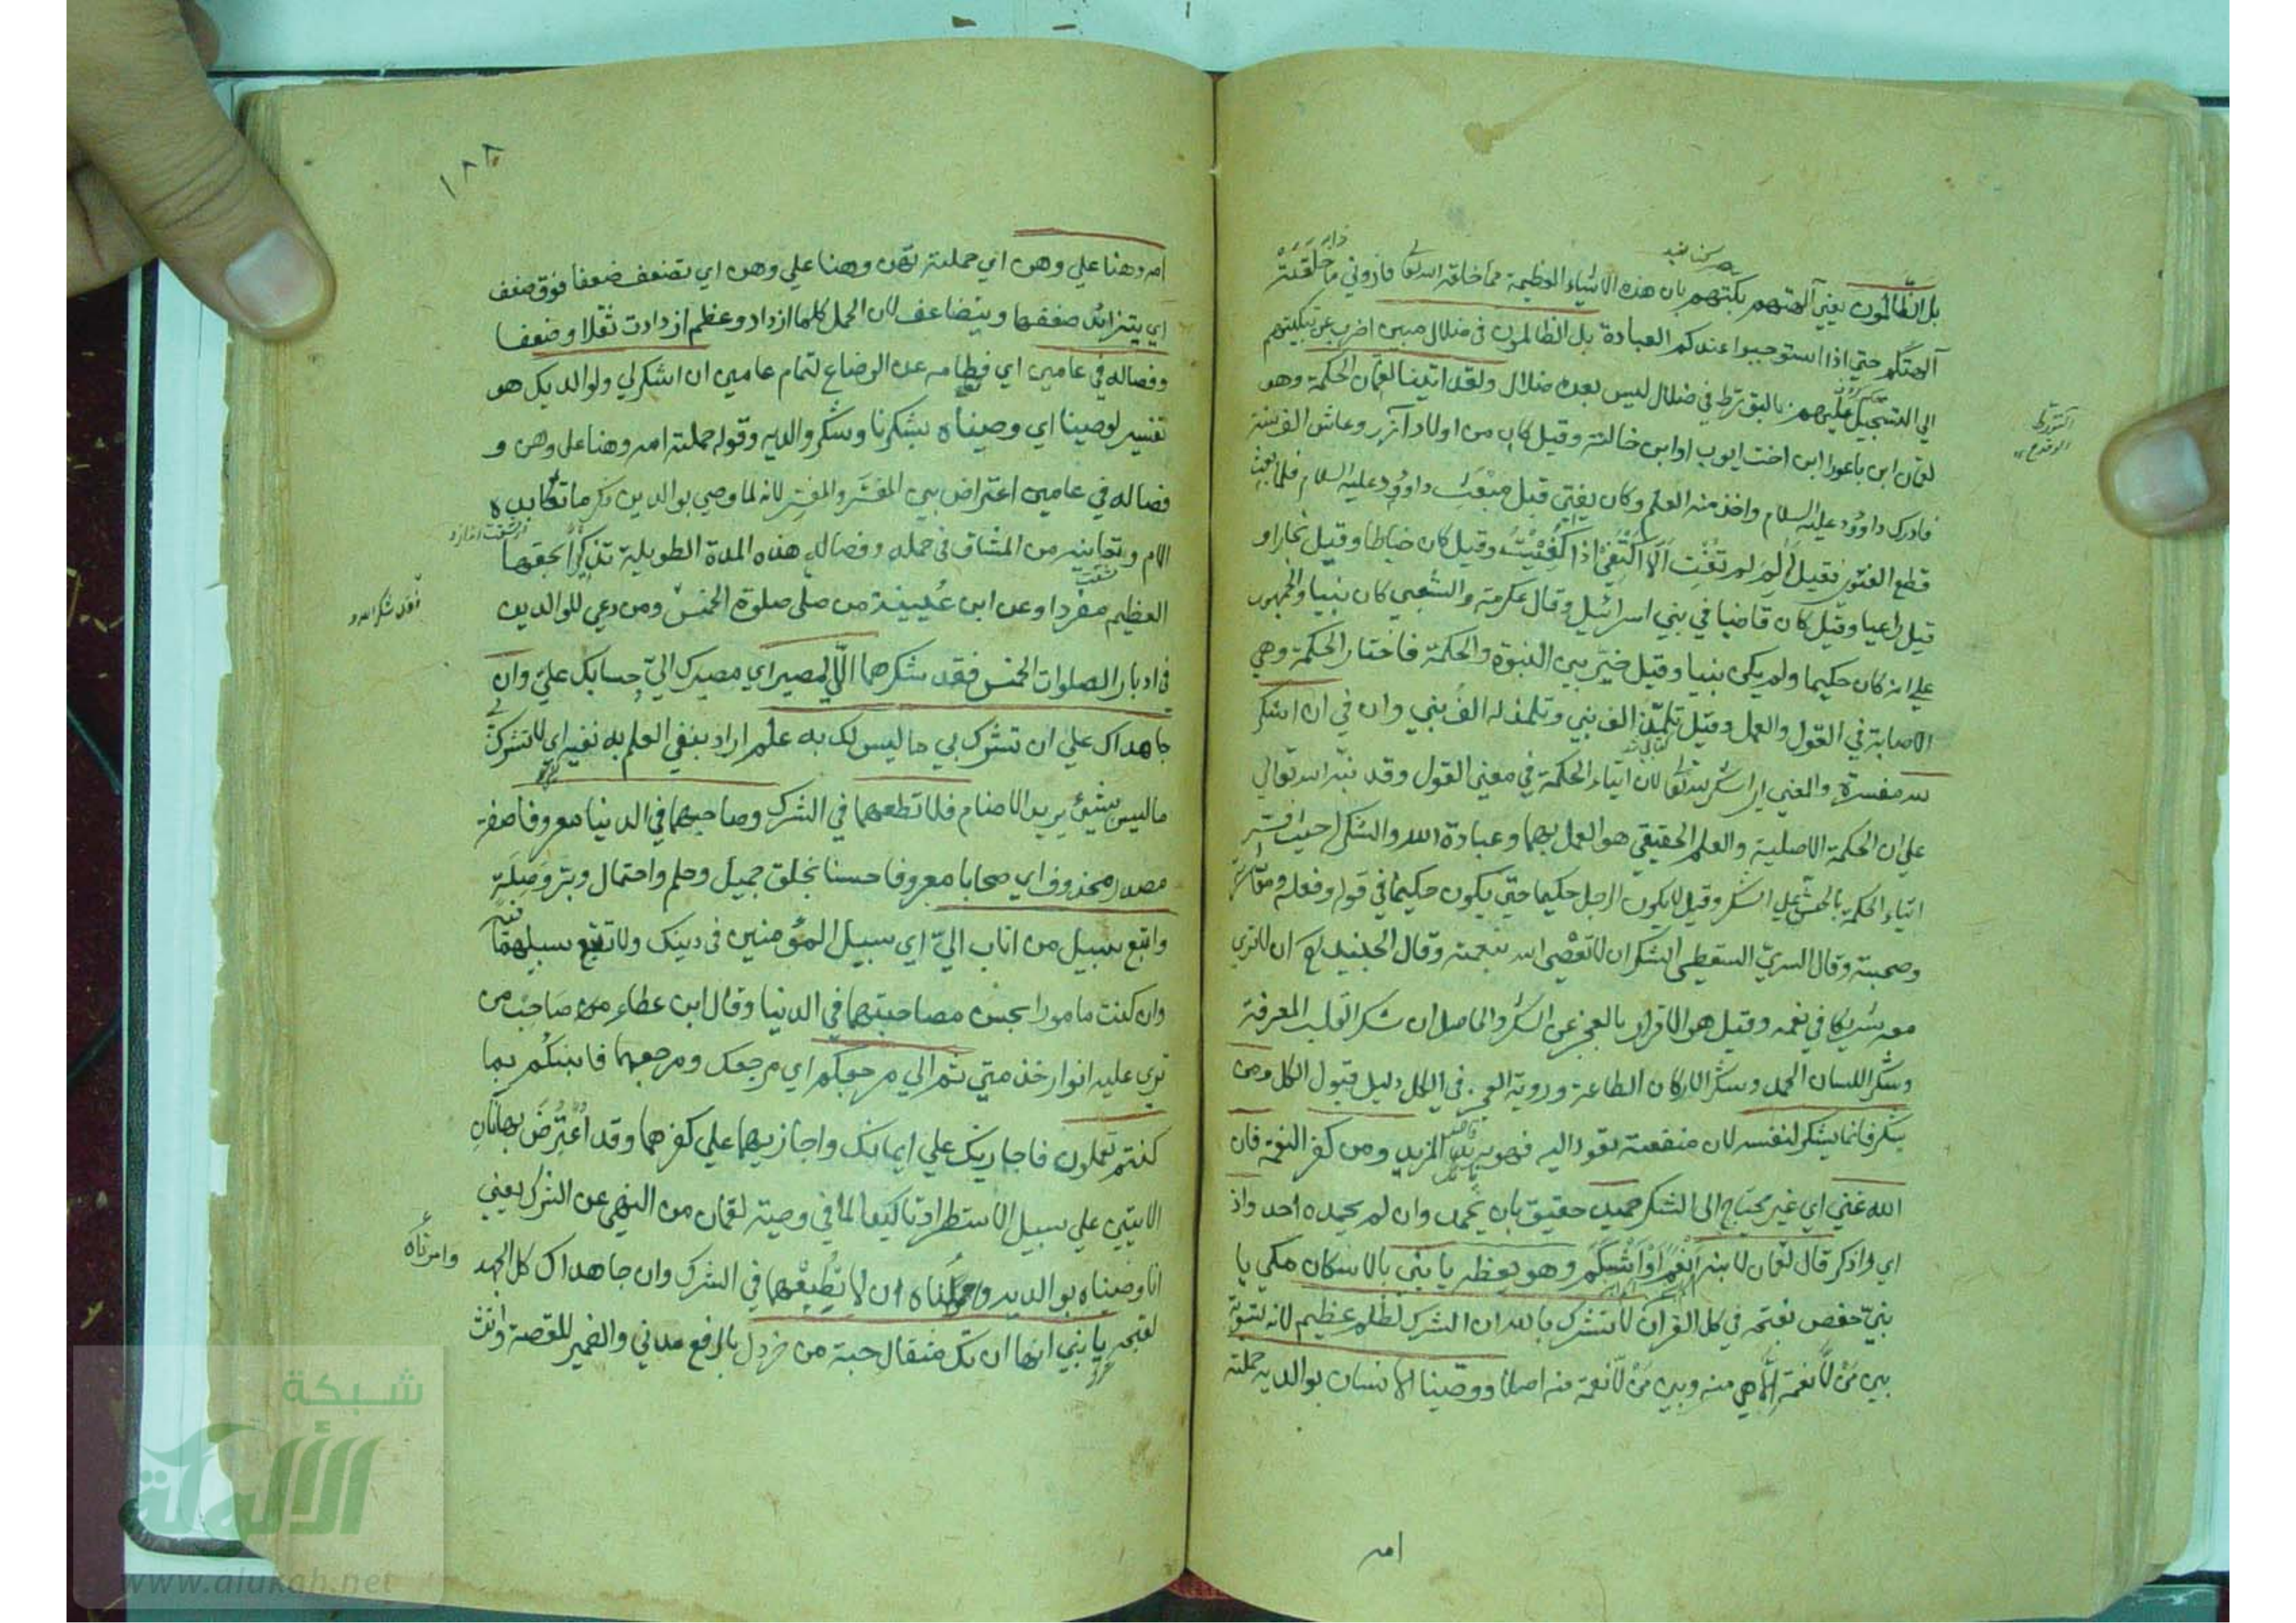 بل الظالمون يعني آلهتهم بكتهم بان هذه الاشياء العظيمة مما خلقه الله تعا فاروني ما خلقته
آلهتكم حتي اذا استوجبوا عندكم العبادة بل الظالمون في ضلال مبين اضرب عن تبكيتهم
الي التسجيل عليهم بالتورط في ضلال ليس بعده ضلال ولقد اتينا لقمان الحكمة وهو
لقمان ابن باعورا ابن اخت ايوب او ابن خالته وقيل كان من اولاد آزر وعاش الف سنة
فادرك داوُد عليه السلام واخذ منه العلم وكان يفتي قبل مبعث داوُد عليه السلام فلما بعث
قطع الفتوي فقيل له لم لم تفت الا اكتفي اذا كفيت وقيل كان خياطا وقيل نجارا و
قيل راعيا وقيل كان قاضيا في بني اسرائيل وقال عكرمة والشعبي كان نبيا والجمهور
علي انه كان حكيما ولم يكن نبيا وقيل خير بين النبوة والحكمة فاختار الحكمة وهي
الاصابة في القول والعمل وقيل تلمذ الف نبي وتلمذ له الف نبي وان في ان اشكر
لله مفسرة والمعني اي اشكر لله تعا لان ايتاء الحكمة في معني القول وقد نبه الله تعالي
علي ان الحكمة الاصلية والعلم الحقيقي هو العمل بهما وعبادة الله والشكر له حيث فسر
ايتاء الحكمة بالحث علي الشكر وقيل لا يكون الرجل حكيما حتي يكون حكيما في قوله وفعله ومعاشرته
وصحبته وقال السري السقطي الشكر ان لا تعصي الله بنعمه وقال الجنيد ان لا تري
معه شريكا في نعمه وقيل هو الاقرار بالعجز عن الشكر والحاصل ان شكر القلب المعرفة
وشكر اللسان الحمد وشكر الاركان الطاعة وروية العجز في الكل دليل قبول الكل ومن
يشكر فانما يشكر لنفسه لان منفعته تعود اليه فهو يريد المزيد ومن كفر النعمة فان
الله غني اي غير محتاج الي الشكر حميد حقيق بان يحمد وان لم يحمده احد واذ
اي واذكر قال لقمان لابنه انعم او اشكم وهو يعظه يا بني بالاسكان مكي يا
بني حفص بفتحه في كل القران لا تشرك بالله ان الشرك لظلم عظيم لانه تسوية
بين من لا نعمة الا هي منه وبين من لا نعمة منه اصلا ووصينا الانسان بوالديه حملته
امه
١٨٨
امه وهنا علي وهن اي حملته تهن وهنا علي وهن اي تضعف ضعفا فوق ضعف
اي يتزايد ضعفها ويتضاعف لان الحمل كلما ازداد وعظم ازدادت ثقلا وضعفا
وفصاله في عامين اي فطامه عن الرضاع لتمام عامين ان اشكر لي ولوالديك هو
تفسير لوصينا اي وصيناه بشكرنا وشكر والديه وقوله حملته امه وهنا علي وهن و
فصاله في عامين اعتراض بين المفسَّر والمفسِّر لانه لما وصي بوالدين ذكر ما تكابده
الام وتعانيه من المشاق في حمله وفصاله هذه المدة الطويلة تذكيرا بحقها
العظيم مفردا وعن ابن عُيينة من صلي صلوة الخمس ومن دعي للوالدين
فقد شكر الله و
في ادبار الصلوات الخمس فقد شكرهما اليّ المصير اي مصيرك اليّ وحسابك عليّ وان
جاهداك علي ان تشرك بي ما ليس لك به علم اراد بنفي العلم به نفيه اي لا تشرك
ما ليس بشيئ يريد الاصنام فلا تطعهما في الشرك وصاحبهما في الدنيا معروفا صفة
مصدر محذوف اي صحابا معروفا حسنا بخلق جميل وحلم واحتمال وبر وصلة
واتبع سبيل من اناب اليّ اي سبيل المؤمنين في دينك ولا تتبع سبيلهما فيه
وان كنت مامورا بحسن مصاحبتهما في الدنيا وقال ابن عطاء من صاحب من
تري عليه انوار خدمتي ثم الي مرجعكم اي مرجعك ومرجعهما فانبئكم بما
كنتم تعملون فاجازيك علي ايمانك واجازيهما علي كفرهما وقد اُعتُرِض بهاتان
الايتين علي سبيل الاستطراد تاكيدا لما في وصية لقمان من النهي عن الشرك يعني
وامرناه
انا وصيناه بوالديه وحملناه ان لا يُطيعهما في الشرك وان جاهداك كل الجهد
لقبحه يا بني انها ان تك مثقال حبة من خردل بالرفع مدني والضمير للقصة وانث
شبكة
الألوكة
www.alukah.net